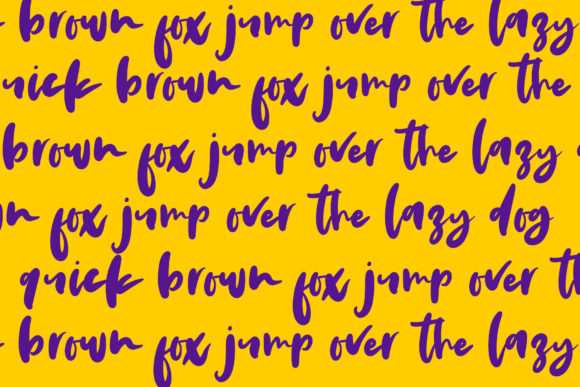 brown fox jump over the lazy
quick brown fox jump over the
brown fox jump over the lazy
fox jump over the lazy dog
quick brown fox jump over th
brown fox jump over the lazy